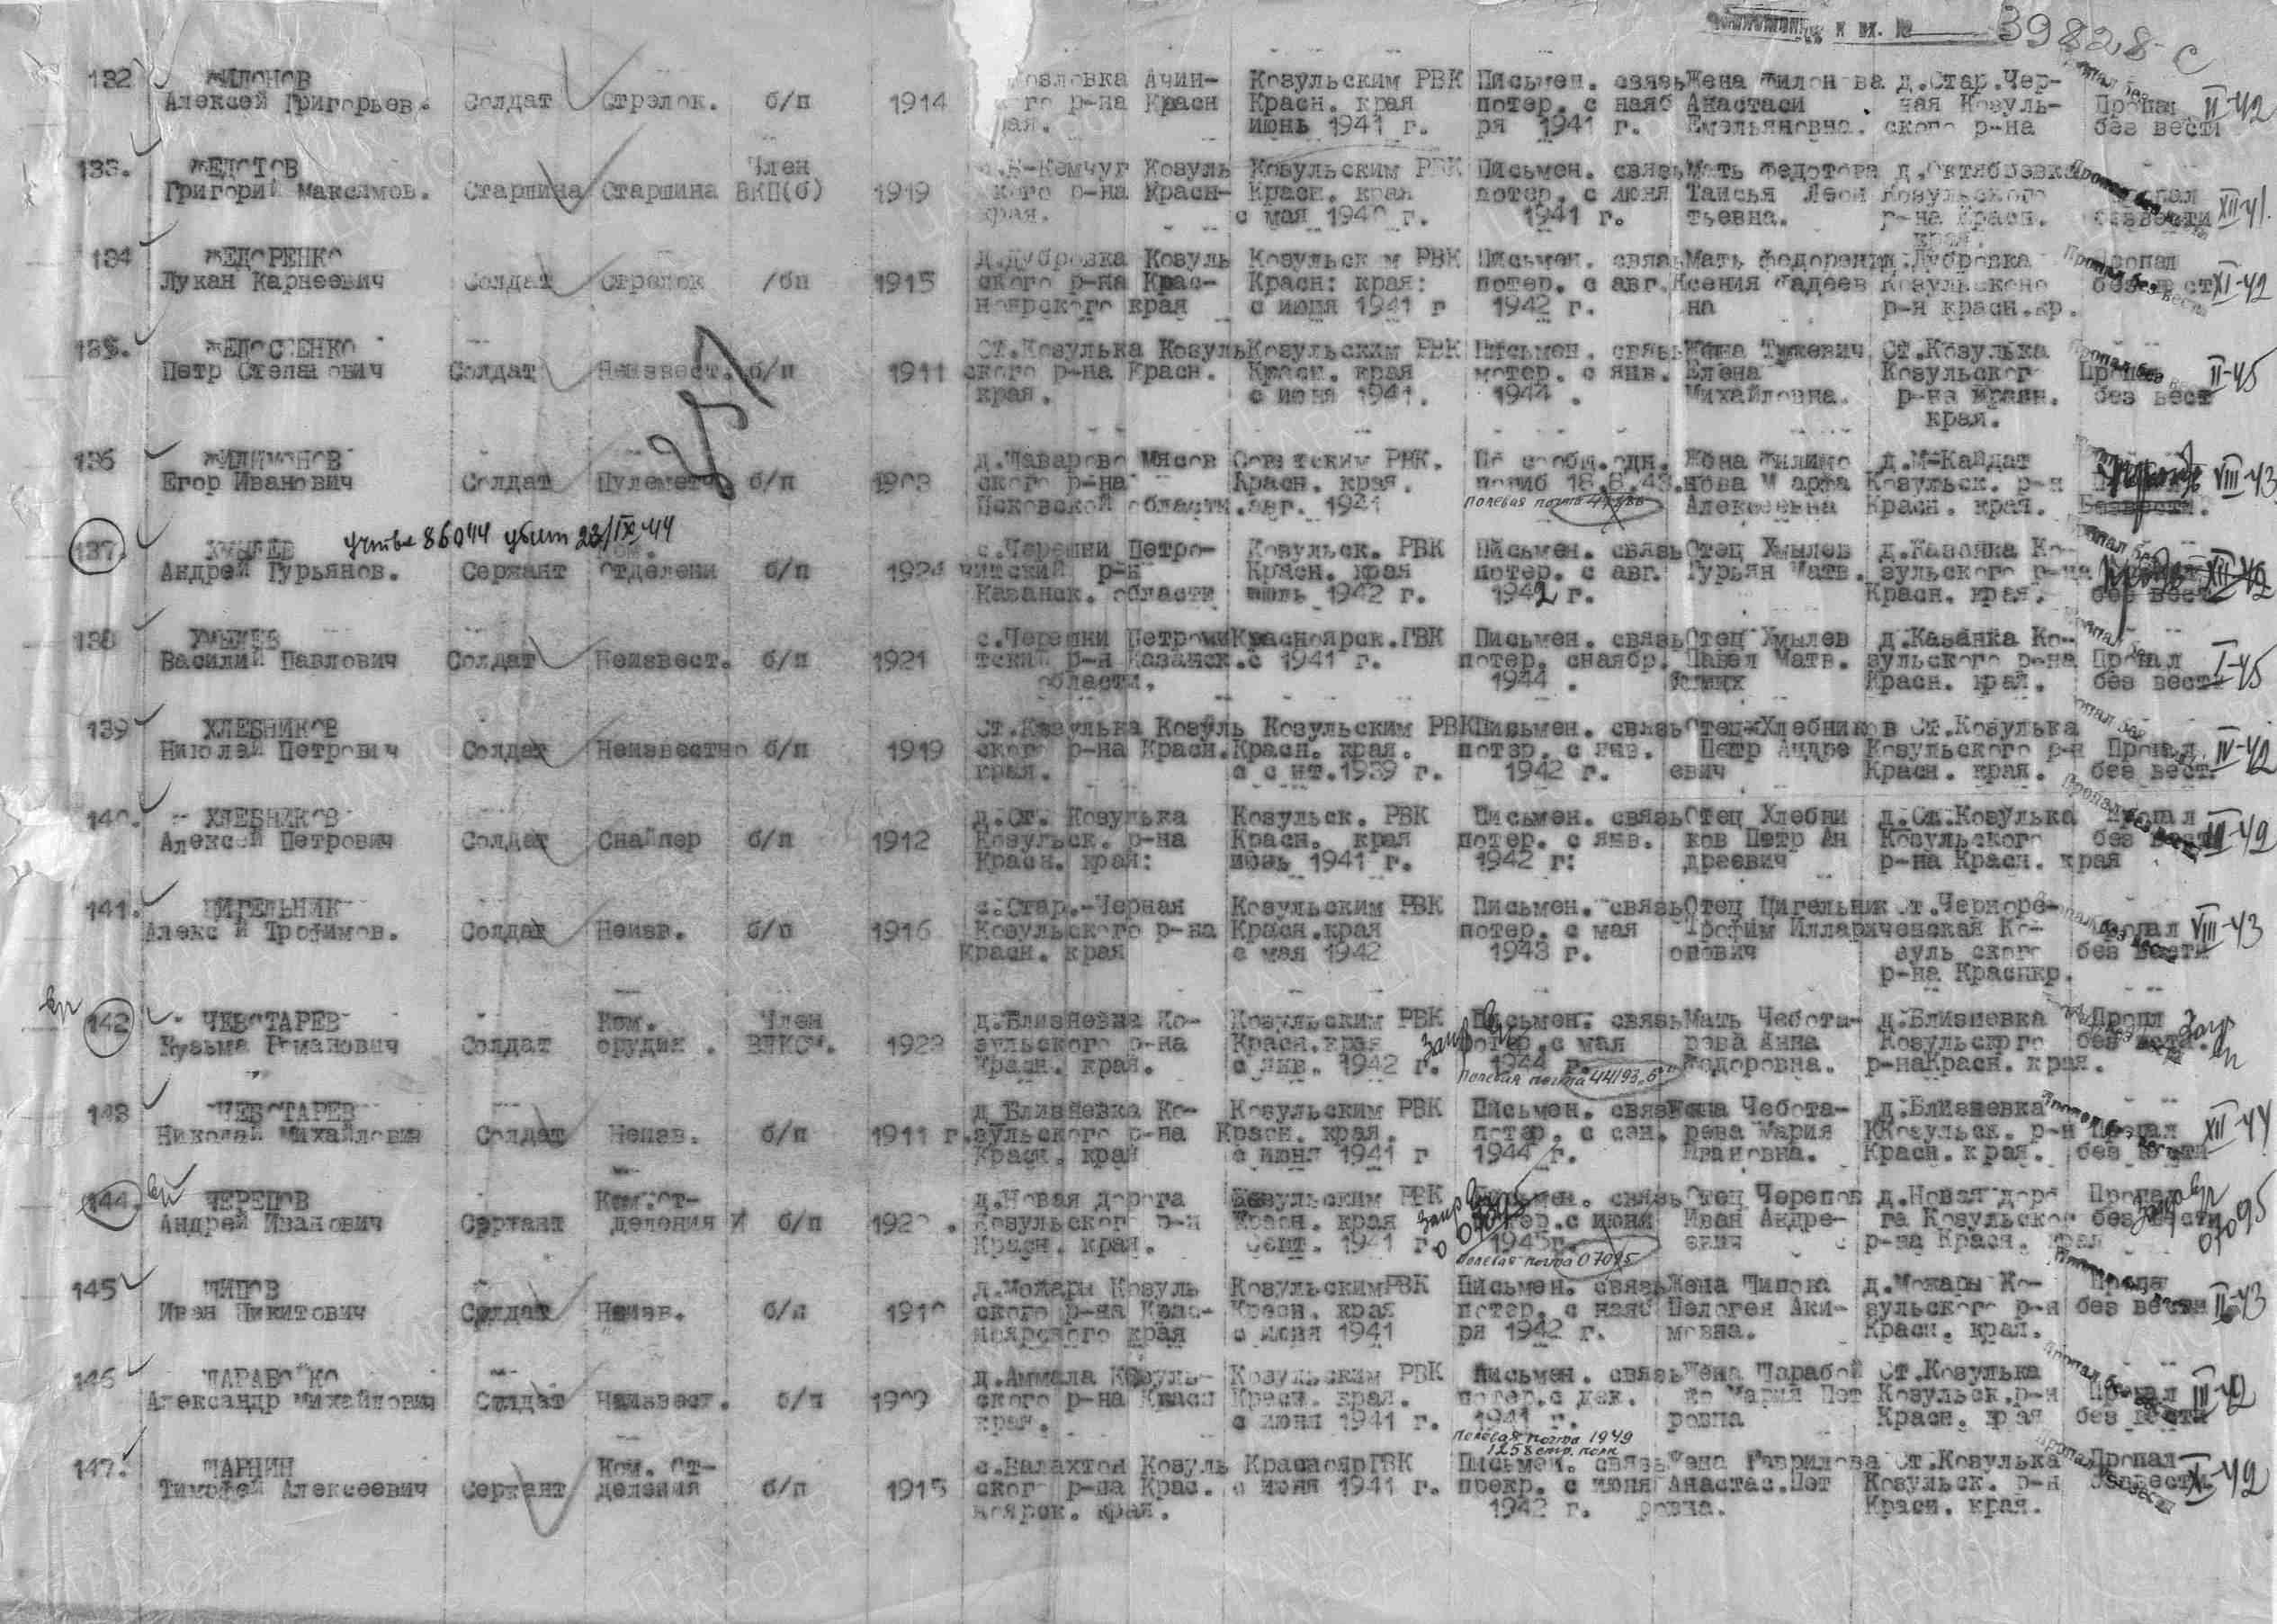 39828-с
132 ФИЛОНОВ
Алексей Григорьев. Солдат Стрелок. б/п 1914
Козловка Ачин- Козульским РВК Письмен. связь Жена Филонова д.Стар.Чер-
кого р-на Красн Красн. края потер. с нояб Анастаси ная Козуль- Пропал II-42
рая. июнь 1941 г. ря 1941 г. Емельяновна. ского р-на без вести
133. ФЕДОТОВ Член
Григорий Максимов. Старшина Старшина ВКП(б) 1919
К-Кемчуг Козуль Козульским РВК Письмен. связь Мать Федотова д.Октябревка
ского р-на Красн- Красн. края потер. с июня Таисья Леон Козульского XII-41.
края. с мая 1940 г. 1941 г. тьевна. р-на Красн. безвести
края.
134 ФЕДОРЕНКО
Лукан Карнеевич Солдат Стрелок /бп 1915
д.Дубровка Козуль Козульским РВК Письмен. связь Мать Федоренк д.Дубровка Пропал
ского р-на Крас- Красн: края: потер. с авг. Ксения Фадеев Козульсконо без вест XI-42
ноярского края с июня 1941 г 1942 г. на р-н красн.кр.
135. ФЕДОСЕЕНКО
Петр Степанович Солдат Неизвест. б/п 1911
Ст.Козулька Козуль Козульским РВК Письмен. связь Жена Ст.Козулька
ского р-на Красн. Красн. края потер. с янв. Елена Козульског Пропал II-45
края. с июня 1941. 1944 . Михайловна. р-на Красн. без вест
края.
136 ФИЛИМОНОВ
Егор Иванович Солдат Пулемет б/п 1908
д.Чаварово Мясов Советским РВК. По сообщ.одн. Жена Филимо д.М-Кайдат
ского р-на Красн. края. погиб 18.8.43. нова Марфа Козульск. р-н VIII-43
Псковской области. авг. 1941 полевая почта Алексеевна Красн. края. Безвести.
137. ХМЫЛЕВ учтён 86044 убит 23/IX-44 Ком.
Андрей Гурьянов. Сержант отделени б/п 1924
с.Черешни Петро- Козульск. РВК Письмен. связь Отец Хмылев д.Казанка Ко-
читский р-н Красн. края потер. с авг. Гурьян Матв. зульского р-на XII-42
Казанск. области июль 1942 г. 1942 г. Красн. края. без вест
138 ХМЫЛЕВ
Василий Павлович Солдат Неизвест. б/п 1921
с.Черешни Петрочи Красноярск.ГВК Письмен. связь Отец Хмылев д.Казанка Ко-
тский р-н Казанск. с 1941 г. потер. сноябр. Павел Матв. зульского р-на Пропал I-45
области. 1944 . Красн. край. без вест
139 ХЛЕБНИКОВ
Николай Петрович Солдат Неизвестно б/п 1919
Ст.Козулька Козуль Козульским РВК Письмен. связь Отец Хлебников Ст.Козулька
ского р-на Красн. Красн. края. потер. с янв. Петр Андре Козульского р-н Пропал IV-42
края. с сент.1939 г. 1942 г. евич Красн. края. без вест.
140. ХЛЕБНИКОВ
Алексей Петрович Солдат Снайпер б/п 1912
д.Ст. Козулька Козульск. РВК Письмен. связь Отец Хлебни д.Ст.Козулька Пропал
Козульск. р-на Красн. края потер. с янв. ков Петр Ан Козульского без вест III-42
Красн. края: июнь 1941 г. 1942 г: дреевич р-на Красн. края
141. ЦИГЕЛЬНИК
Алексей Трофимов. Солдат Неизв. б/п 1916
с.Стар.-Черная Козульским РВК Письмен. связь Отец Цигельник ст.Черноре-
Козульского р-на Красн.края потер. с мая Трофим Иллари ченская Ко- Пропал VIII-43
Красн. края с мая 1942 1943 г. онович зуль ского без вести
р-на Краснкр.
142 ЧЕБОТАРЕВ Ком. Член
Кузьма Романович Солдат орудия . ВЛКСМ. 1922
д.Близневка Ко- Козульским РВК Письмен. связь Мать Чебота- д.Близневка Пропал Запр
зульского р-на Красн.края потер.с мая рева Анна Козульского без вести.
Красн. края. с янв. 1942 г. 1944 г. Федоровна. р-наКрасн. края.
Запр полевая почта 44193.б
143 ЧЕБОТАРЕВ
Николай Михайлович Солдат Неизв. б/п 1911 г.
д Близневка Ко- Козульским РВК Письмен. связь Жена Чебота- д.Близневка
зульского р-на Красн. края. потер. с сен. рева Мария ККозульск. р-н Пропал XII-44
Красн. край с июня 1941 г 1944 г. Ивановна. Красн. края. без вести
144. ЧЕРЕПОВ Ком.от-
Андрей Иванович Сержант деления б/п 1922 .
д.Новая дорога Козульским РВК Письмен. связь Отец Черепов д.Новая доро Пропал
Козульского р-н Красн. края потер.с июня Иван Андре- га Козульског без вести
Красн. края. Сент. 1941 г. 1943г. евич р-на Красн. края
Запр 07095 полевая почта 07095 Запр 07095
145 ЧИПОВ
Иван Никитович Солдат Неизв. б/п 1910
д.Можары Козуль КозульскимРВК Письмен. связь Жена Чипова д.Можары Ко- Пропал
ского р-на Крас- Красн. края потер. с нояб Пелогея Аки- зульского р-н без вести II-43
ноярского края с июня 1941 ря 1942 г. мовна. Красн. края.
146 ШАРАБОЙКО
Александр Михайлович Солдат Неизвест. б/п 1909
д.Аммала Козуль- Козульским РВК Письмен. связь Жена Шарабой Ст.Козулька
ского р-на Красн Красн. края. потер.с дек. ко Мария Пет Козульск.р-н Пропал III-42
края. с июня 1941 г. 1941 г. ровна Красн. края без вести
полевая почта 1949
1258 стр. полк
147. ШАРНИН Ком. от-
Тимофей Алексеевич Сержант деления б/п 1915
с.Балахтон Козуль КрасноярГВК Письмен. связь Жена Гаврилова Ст.Козулька Пропал
ского р-на Крас. с июня 1941 г. прекр. с июня Анастас.Пет Козульск. р-н безвести XI-42
ноярск. края. 1942 г. ровна. Красн. края.